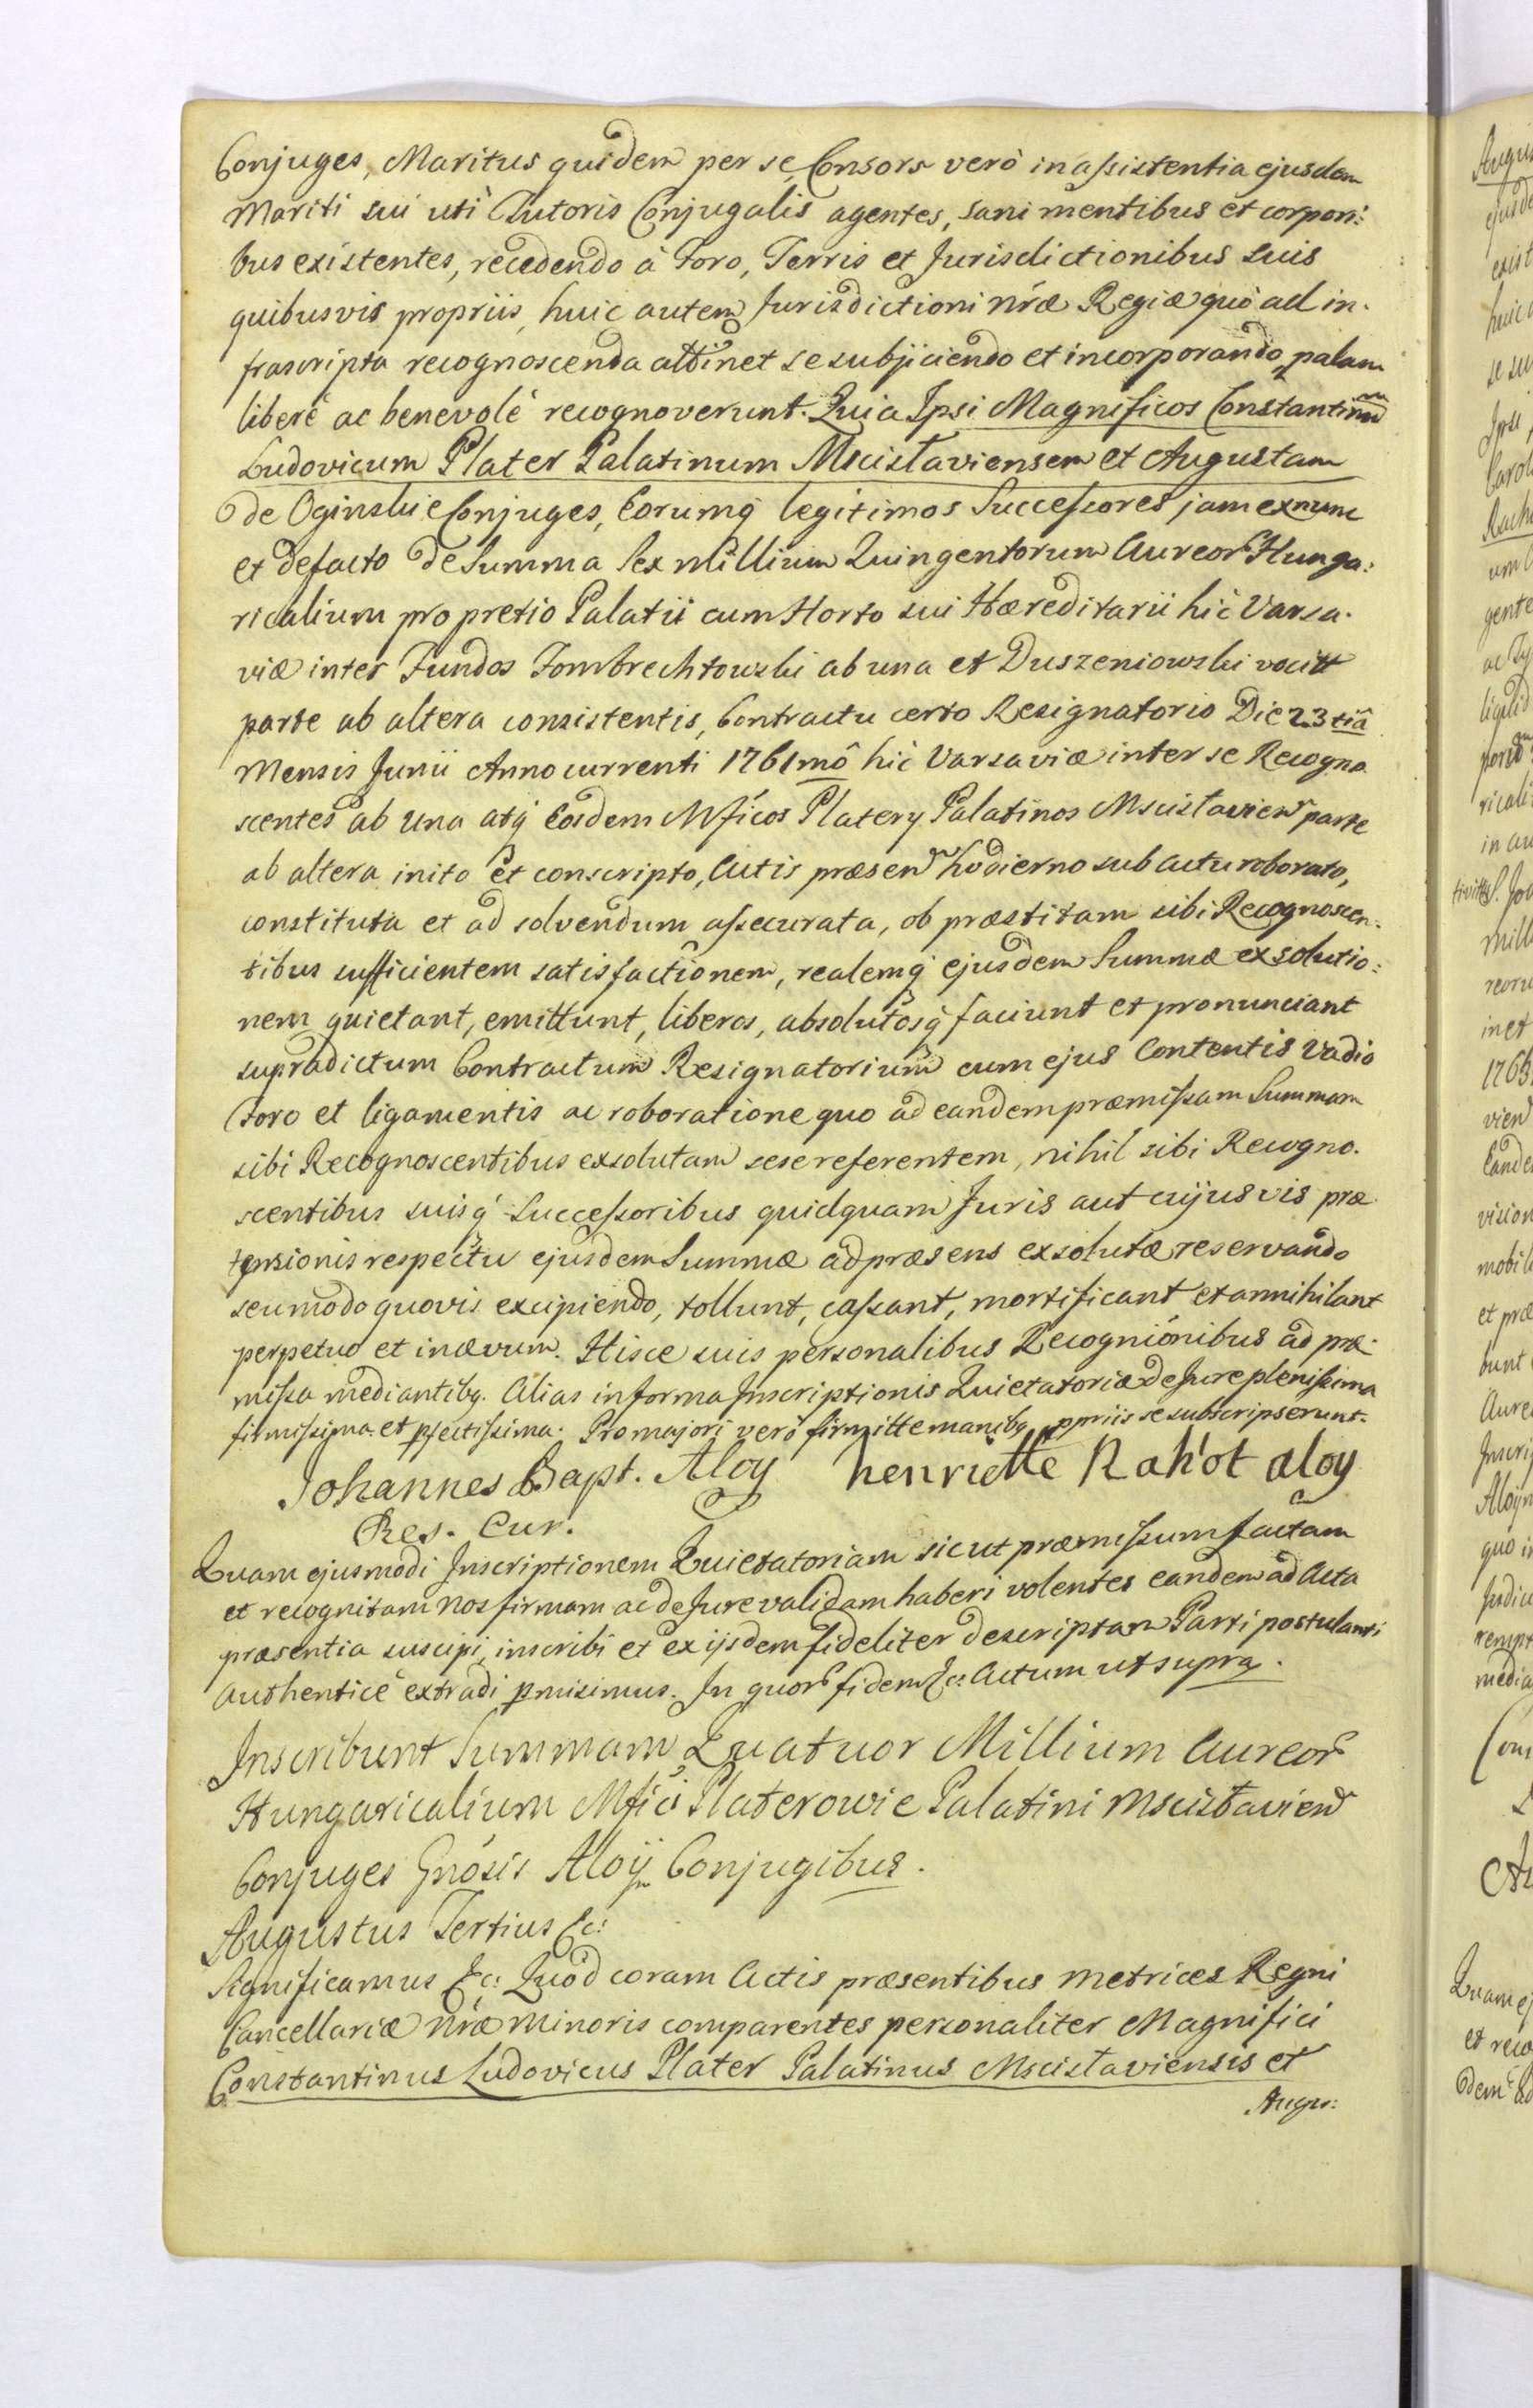 Conjuges, Maritus quidem per se, Consors verò in assistentia ejusdem
Mariti sui uti Tutoris Conjugalis agentes, sani mentibus et corpori:
bus existentes, recedendo à Foro, Terris et Jurisdictionibus suis
quibusvis propriis, huic autem Jurisdictioni nrae Regiae quò ad in-
frascripta recognoscenda attinet se subjiciendo et incorporando, palam
liberè ac benevolè recognoverunt. Quia Ipsi Magnificos Constantinum
Ludovicum Plater Palatinum Mscisłaviensem et Augustam
de Oginskie Conjuges, Eorumq legitimos Successores jam exnunc
et defacto de Summa Sex Millium Quingentorum Aureor Hunga:
ricalium pro pretio Palatii cum Horto sui Haereditarii hic Varsa-
viae inter Fundos Fombrechtowski ab una et Duszeniowski vocitt
parte ab altera consistentis, Contractu certo Resignatorio Die 23 tiâ
Mensis Junii Anno currenti 1761mô hic Varsaviae inter se Recogno
scentes ab una atq Eosdem Mficos Platery Palatinos Mscisłavien parte
ab altera inito et conscripto, Actis praesen hodierno sub actu roborato,
constituta et ad solvendum assecurata, ob praestitam sibi Recognoscen:
tibus sufficientem satisfactionem, realemq ejusdem Summae exsolutio:
nem quietant, emittunt, liberos, absolutosq faciunt et pronunciant
supradictum Contractum Resignatorium cum ejus Contentis Vadio
Foro et ligamentis ac roboratione quo ad eandem praemissam Summam
sibi Recognoscentibus exsolutam sese referentem, nihil sibi Recogno-
scentibus suisq Successoribus quidquam Juris aut cujusvis prae
tensionis respectu ejusdem Summae ad praesens exsolutae reservando
seu modo quovis excipiendo, tollunt, cassant, mortificant et annihilant
perpetuo et in aevum. Hisce suis personalibus Recognionibus ad prae-
missa mediantibq. Alias in forma Inscriptionis Quietatoriae de Jure plenissima
firmissima et pfectissima. Pro majori verò firmitte manibq ppriis se subscripserunt.
Johannes Bapt. Aloy henriette Rah'ot aloy
Res. Cur.
Quam ejusmodi Inscriptionem Quietatoriam sicut praemissum factam
et recognitam Nos firmam ac de Jure validam haberi volentes eandem ad Acta
praesentia suscipi, inscribi et ex iisdem fideliter descriptam Parti postulanti
authenticè extradi pmisimus. In quor fidem &c: Actum ut supra.
Inscribunt Summam Quatuor Millium Aureor
Hungaricalium Mfici Platerowie Palatini Mscisłavien
Conjuges Gnosis Aloÿ Conjugibus.
Augustus Tertius &c:
Significamus &c: Quòd coram Actis praesentibus Metrices Regni
Cancellariae nrae Minoris comparentes personaliter Magnifici
Constantinus Ludovicus Plater Palatinus Mscisłaviensis et
Augu: